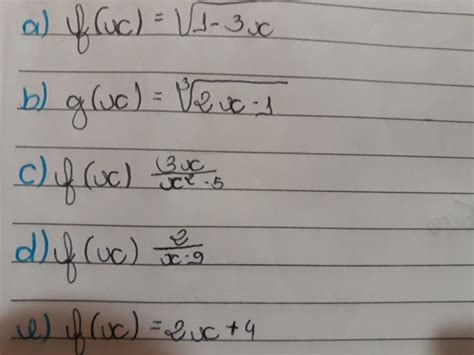 a) f(x) = √1-3x
b) g(x) = ∛2x-1
c) f(x) 3x/x²-5
d) f(x) 2/x-9
e) f(x) = 2x+4